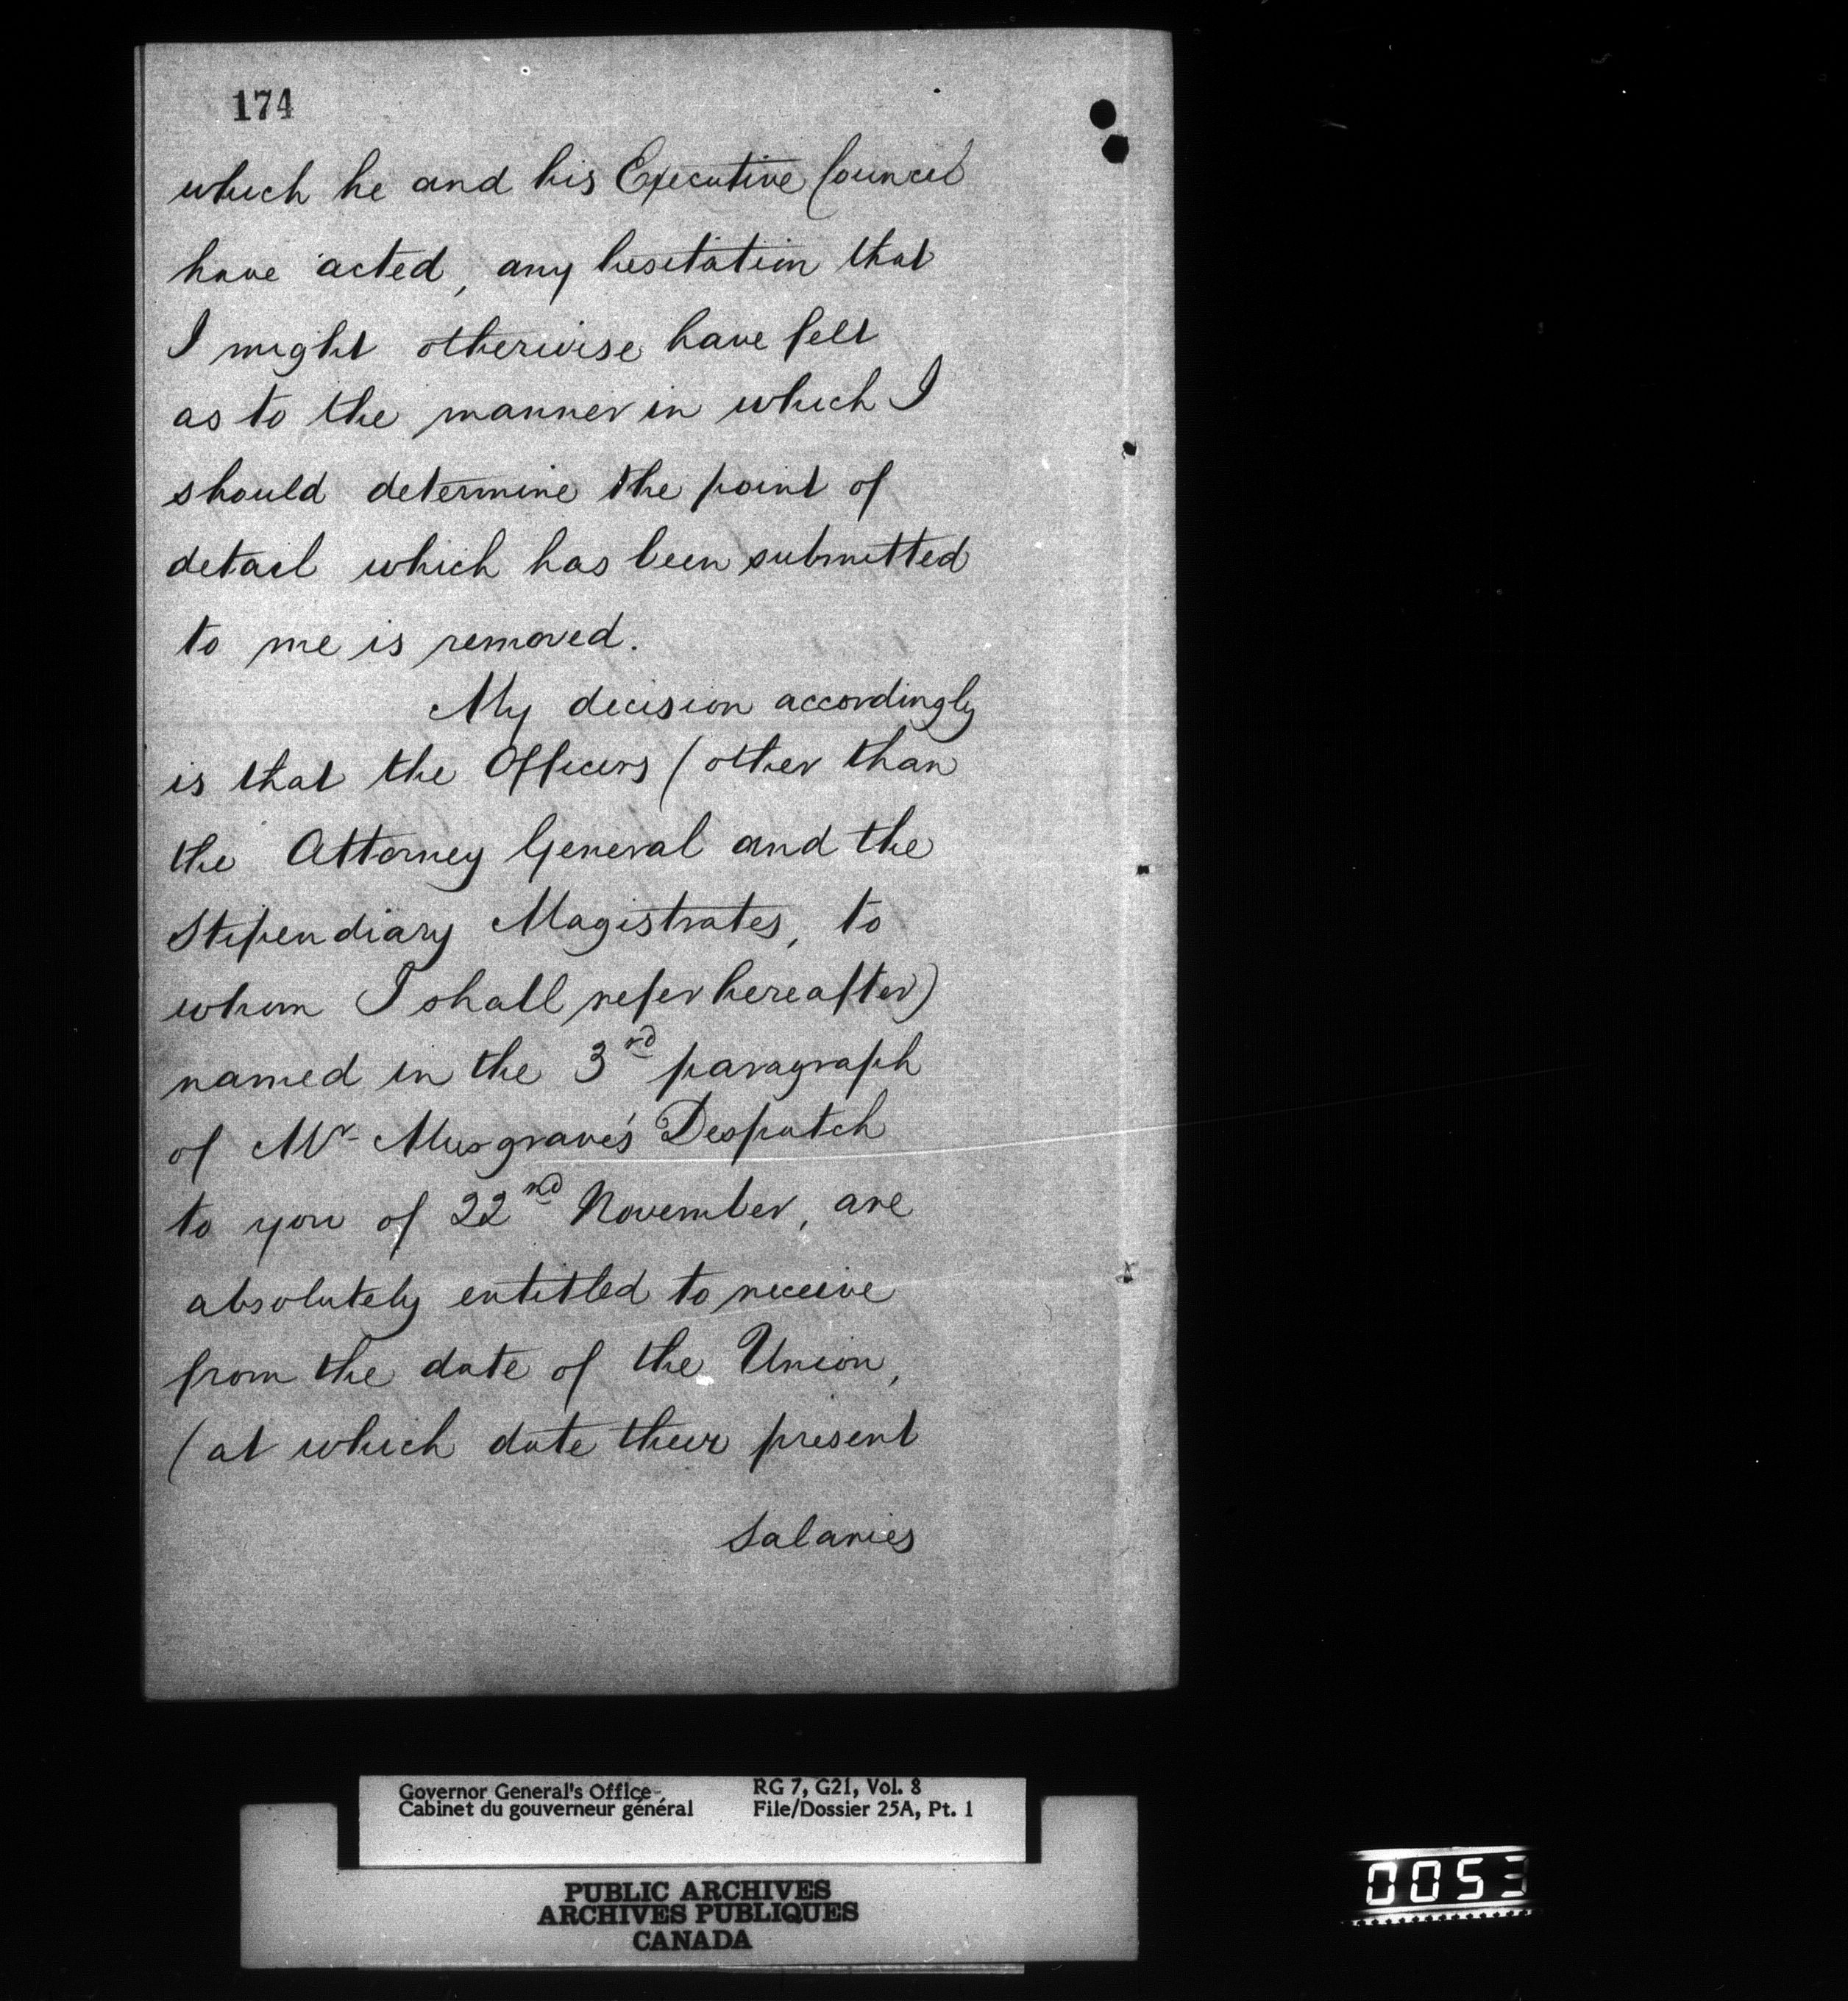 174
which he and his Executive Council
have acted, any hesitation that
I might otherwise have felt
as to the manner in which I
should determine the point of
detail which has been submitted
to me is removed.
My decision accordingly
is that the Officers (other than
the Attorney General and the
Stipendiary Magistrates, to
whom I shall refer hereafter)
named in the 3rd paragraph
of Mr. Musgrave's Despatch
to you of 22nd November, are
absolutely entitled to receive
from the date of the Union,
(at which date their present
Salaries
Governor General's Office
Cabinet du gouverneur général
RG 7, G21, Vol. 8
File/Dossier 25A, Pt. 1
PUBLIC ARCHIVES
ARCHIVES PUBLIQUES
CANADA
0053